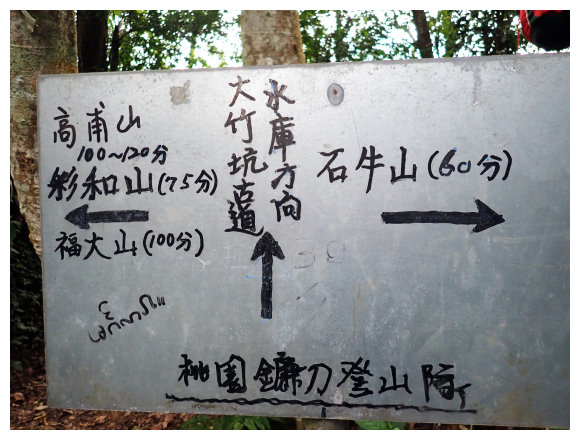 高甫山
100~120分
彩和山(75分)
福大山(100分)
水庫方向
大竹坑古道
石牛山(60分)
桃園鐮刀登山隊